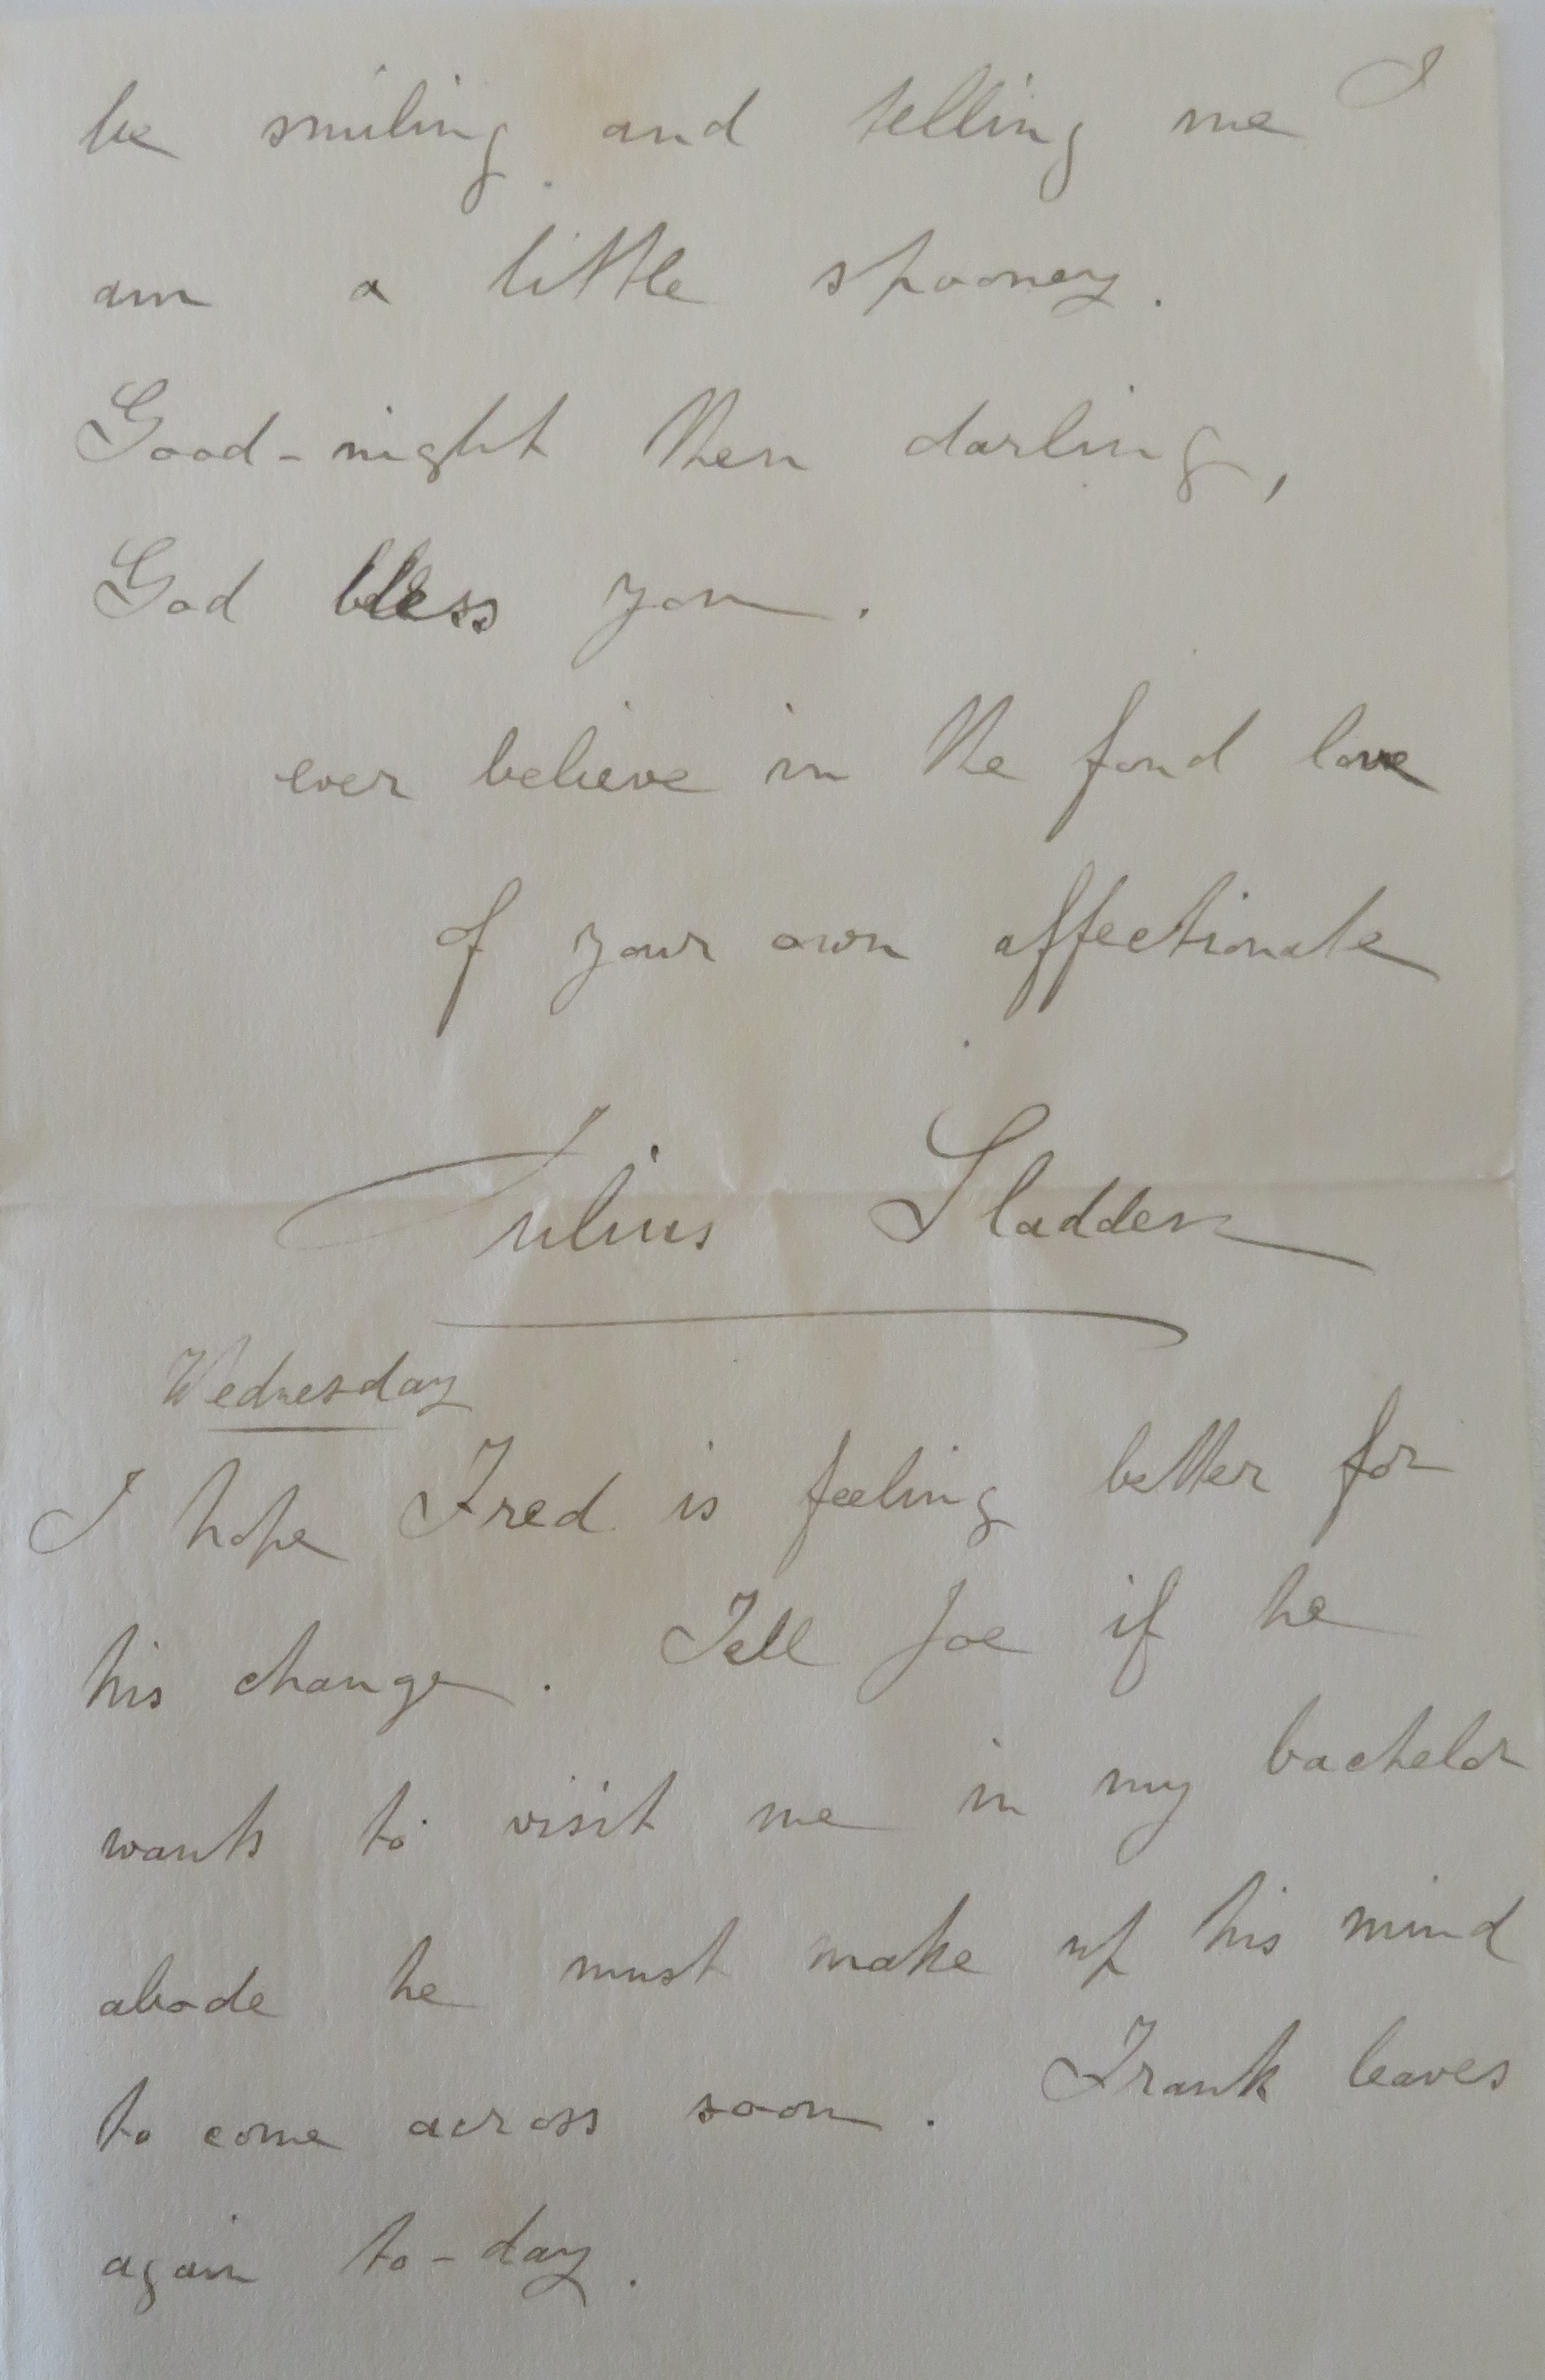 be smiling and telling me I
am a little spooney.
Good-night then darling,
God bless you.
ever believe in the fond love
of your own affectionate
Julius Sladden
Wednesday
I hope Fred is feeling better for
his change. Tell Joe if he
wants to visit me in my bachelor
abode he must make up his mind
to come across soon. Frank leaves
again to-day.